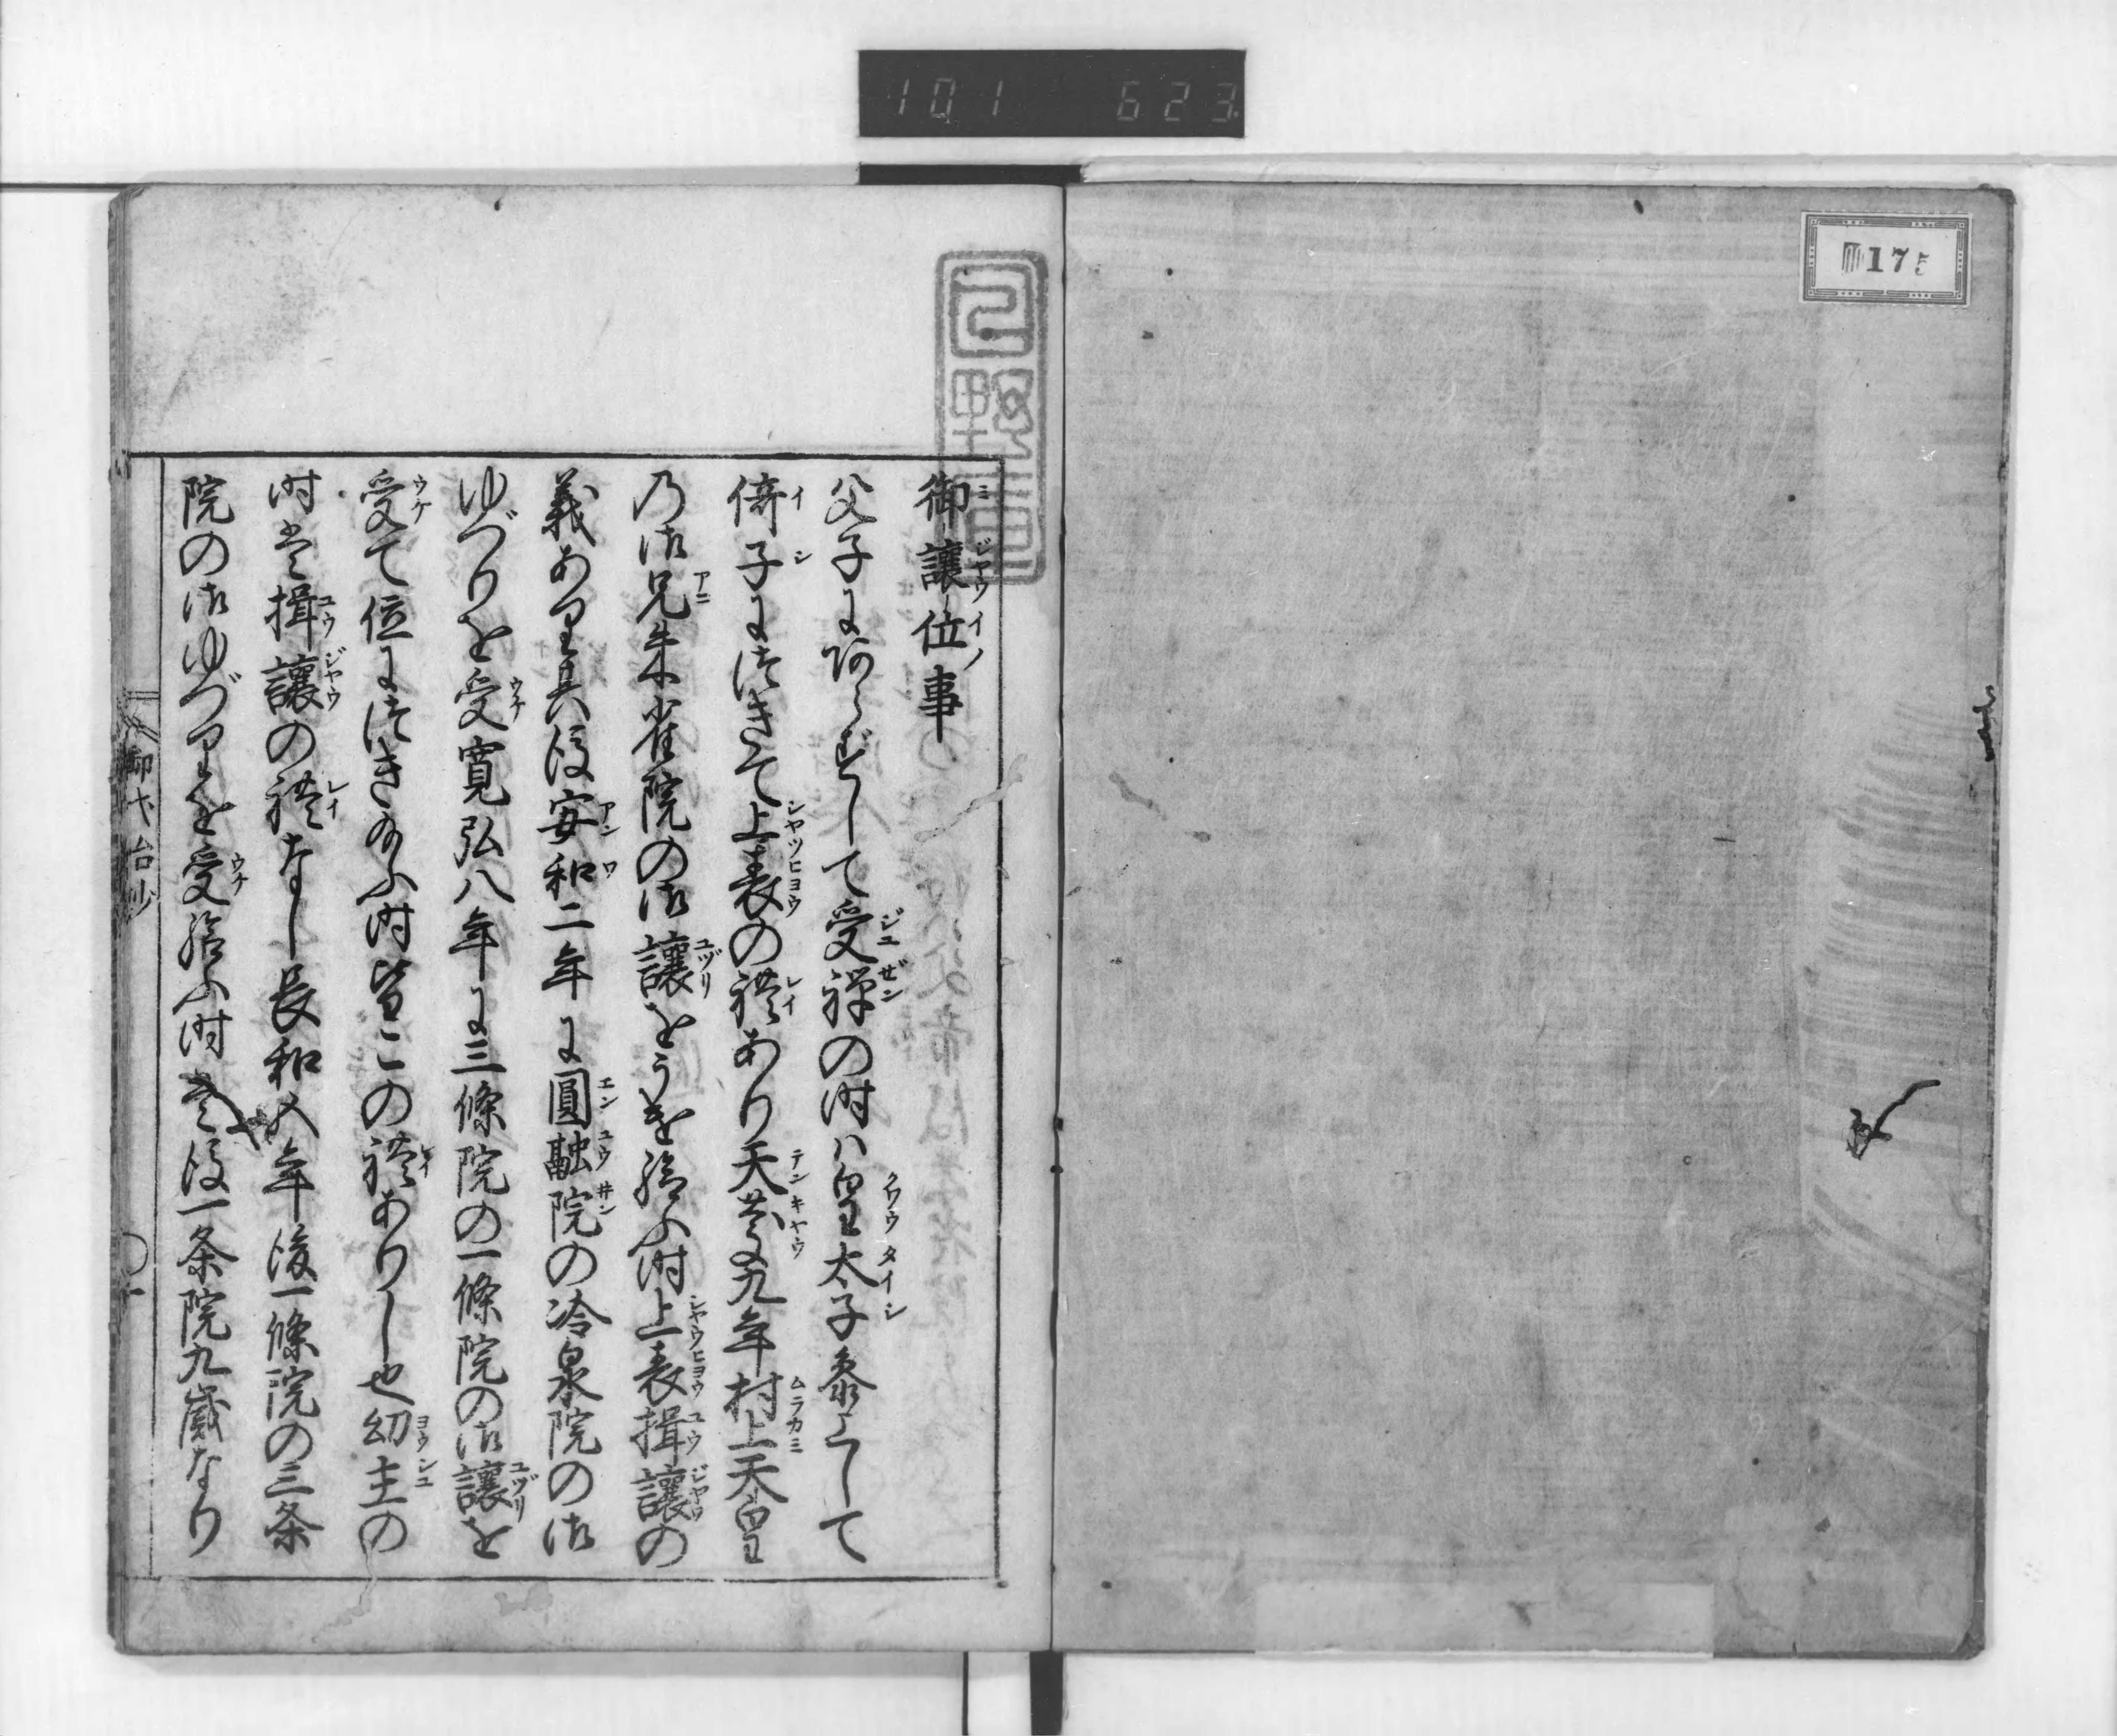 101 623
175
御讓位事
父子にあらずして受禅の時ハ皇太子参らして
倚子につきて上表の禮あり天慶九年村上天皇
乃御兄朱雀院の御讓をうけ給ふ時上表揖讓の
義あり其後安和二年に圓融院の冷泉院の御
ゆづりを受寛弘八年に三條院の一條院の御讓を
受て位につき給ふ時皆この禮ありし也幼主の
時は揖讓の禮なし長和五年後一條院の三条
院の御ゆづりを受給ふ時は後一条院九歳なり